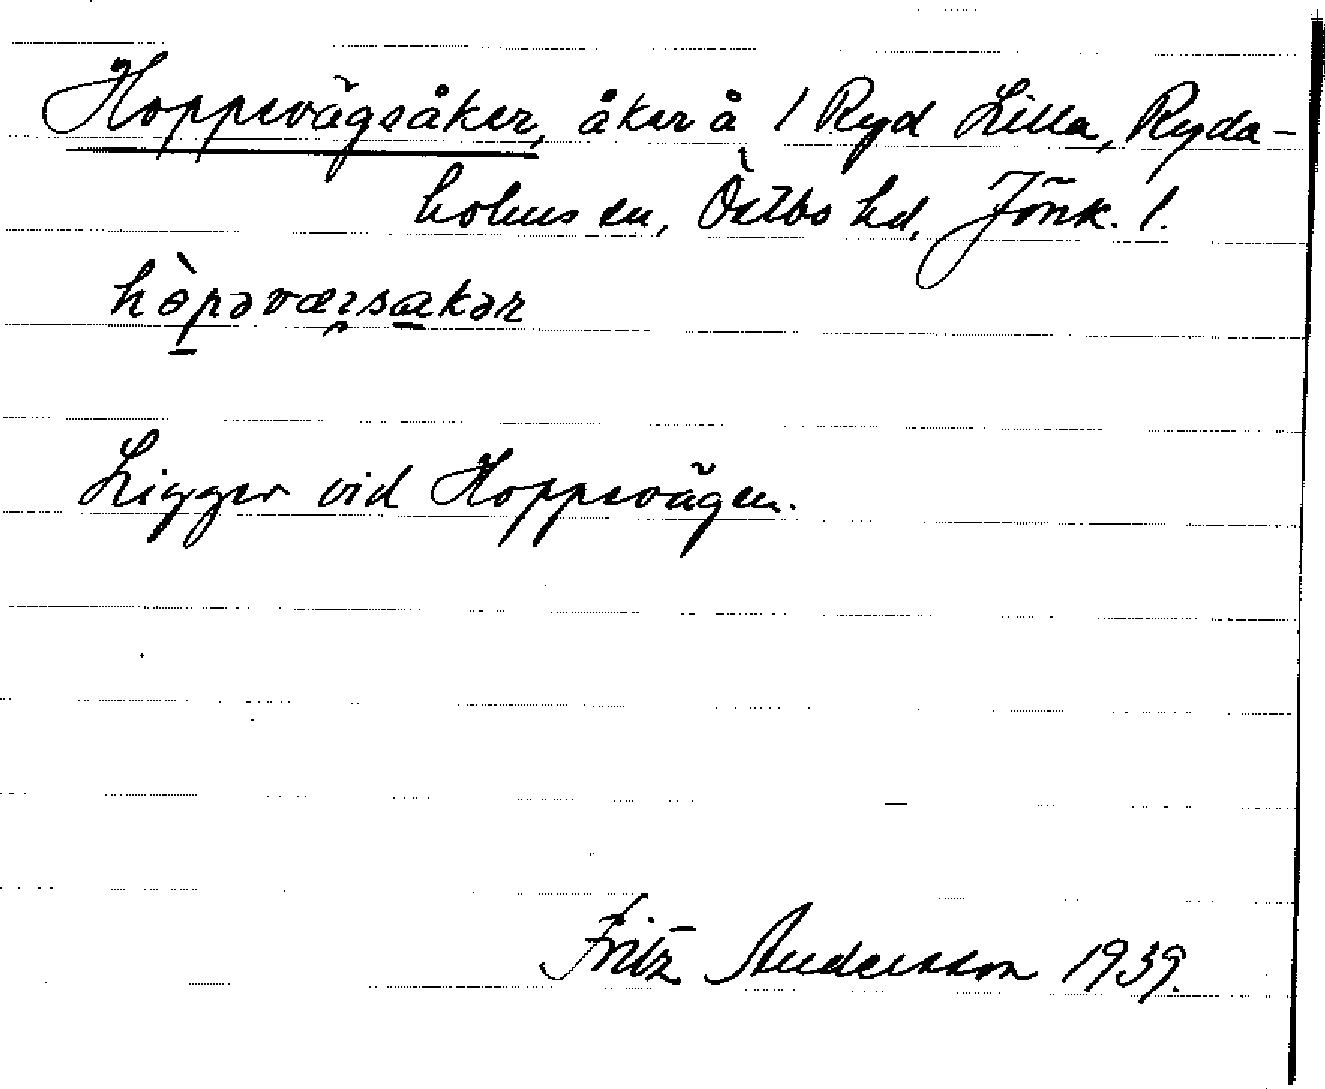 Hoppevägsåker, åker å 1 Ryd Lilla, Ryda-
holms sn, Östbo hd, Jönk. l.
hòpəvæɪ̯sakər
Ligger vid Hoppevägen.
Fritz Andersson 1939.